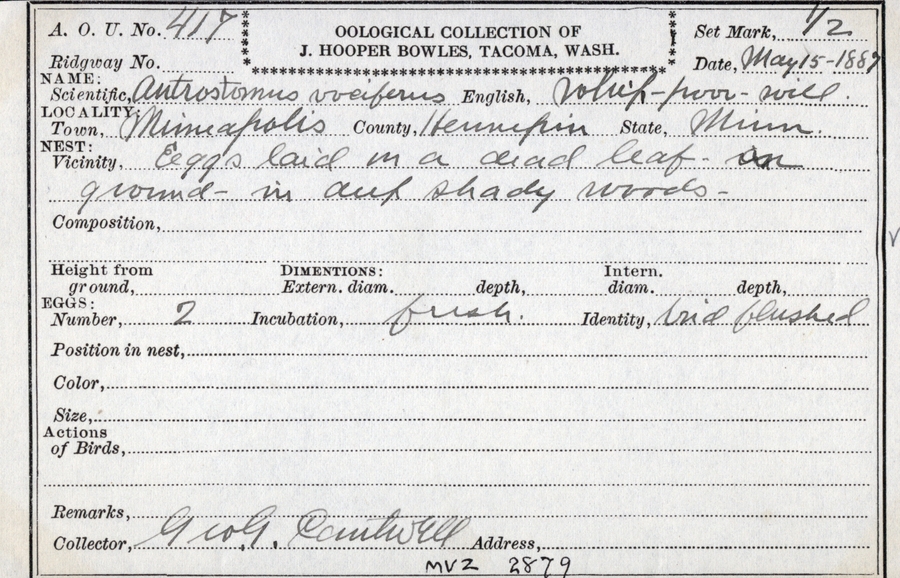 A. O. U. No. 417
OOLOGICAL COLLECTION OF
J. HOOPER BOWLES, TACOMA, WASH.
Set Mark, 1/2
Ridgway No.
Date, May 15-1887
NAME:
Scientific, Antrostomus vociferus English, Whip-poor-will.
LOCALITY:
Town, Minneapolis County, Hennepin State, Minn.
NEST:
Vicinity, Eggs laid in a dead leaf- on
ground- in deep shady woods-
Composition,
Height from ground, DIMENTIONS: Extern. diam. depth, Intern. diam. depth,
EGGS:
Number, 2 Incubation, fresh. Identity, bird flushed
Position in nest,
Color,
Size,
Actions
of Birds,
Remarks,
Collector, Geo. G. Cantwell Address,
MVZ 2879